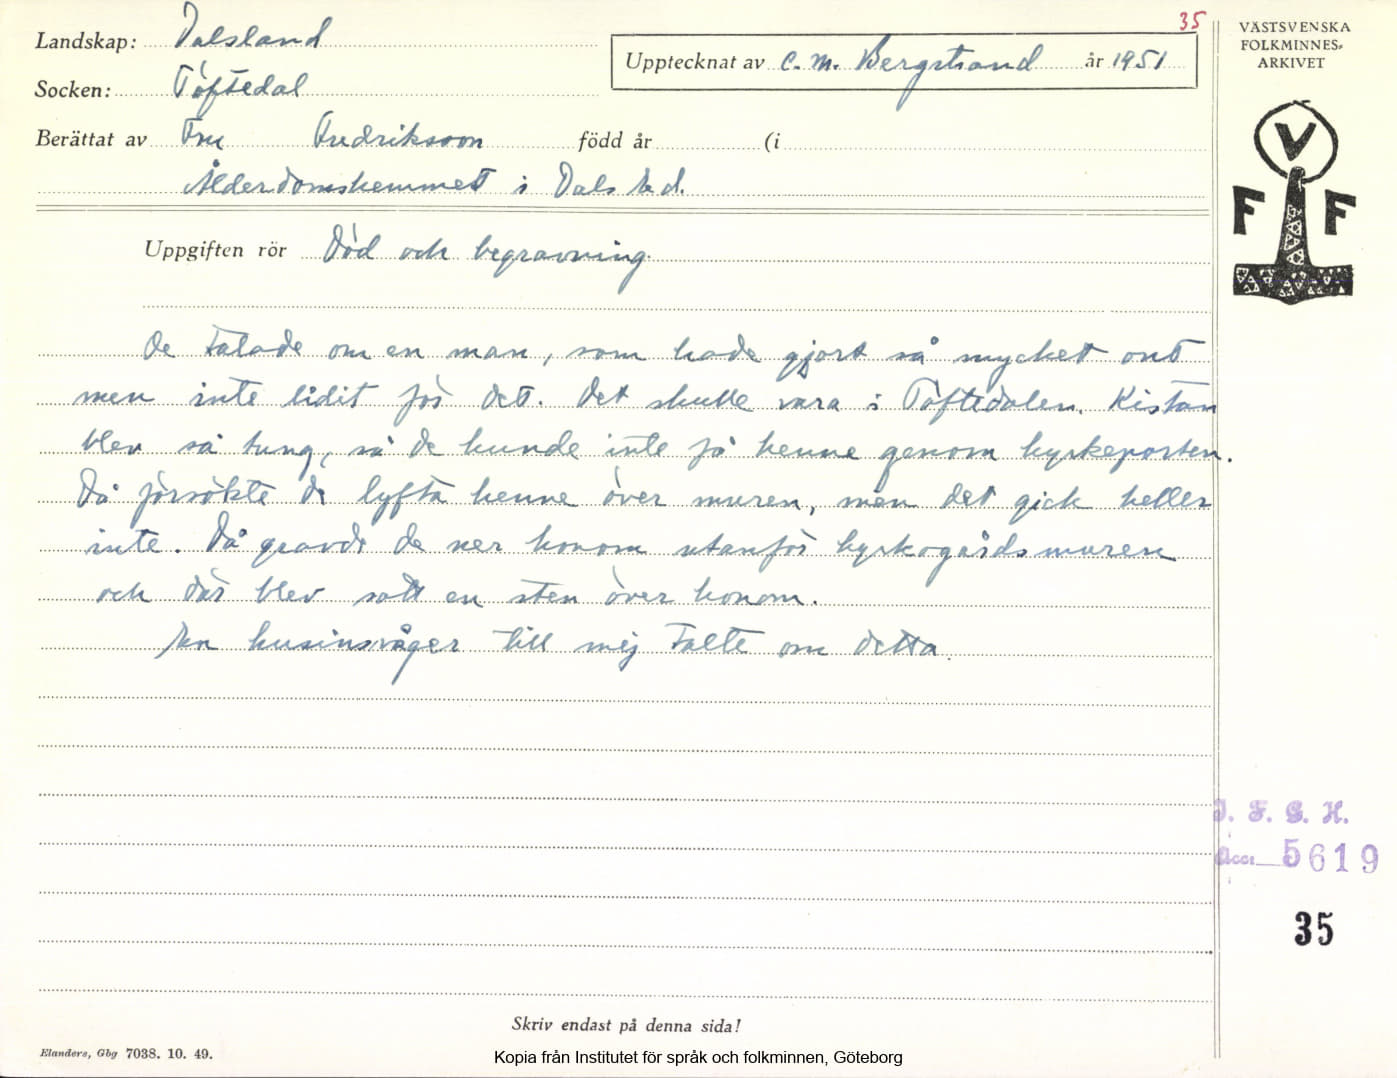 35
Landskap: Dalsland
Upptecknat av C. M. Bergstrand år 1951
Socken: Töftedal
Berättat av Fru Fredriksson född år (i
Ålderdomshemmet i Dals Ed.
VÄSTSVENSKA
FOLKMINNES-
ARKIVET
V
F F
Uppgiften rör Död och begravning.
De talade om en man, som hade gjort så mycket ont
men inte lidit för det. Det skulle vara i Töftedalen. Kistan
blev så tung, så de kunde inte få henne genom kyrkeporten.
Då försökte de lyfta henne över muren, men det gick heller
inte. Då gravde de ner honom utanför kyrkogårdsmuren
och där blev satt en sten över honom.
En kusinsvåger till mej talte om detta.
I. F. G. H.
Acc. 5619
35
Skriv endast på denna sida!
Elanders, Gbg 7038. 10. 49.
Kopia från Institutet för språk och folkminnen, Göteborg